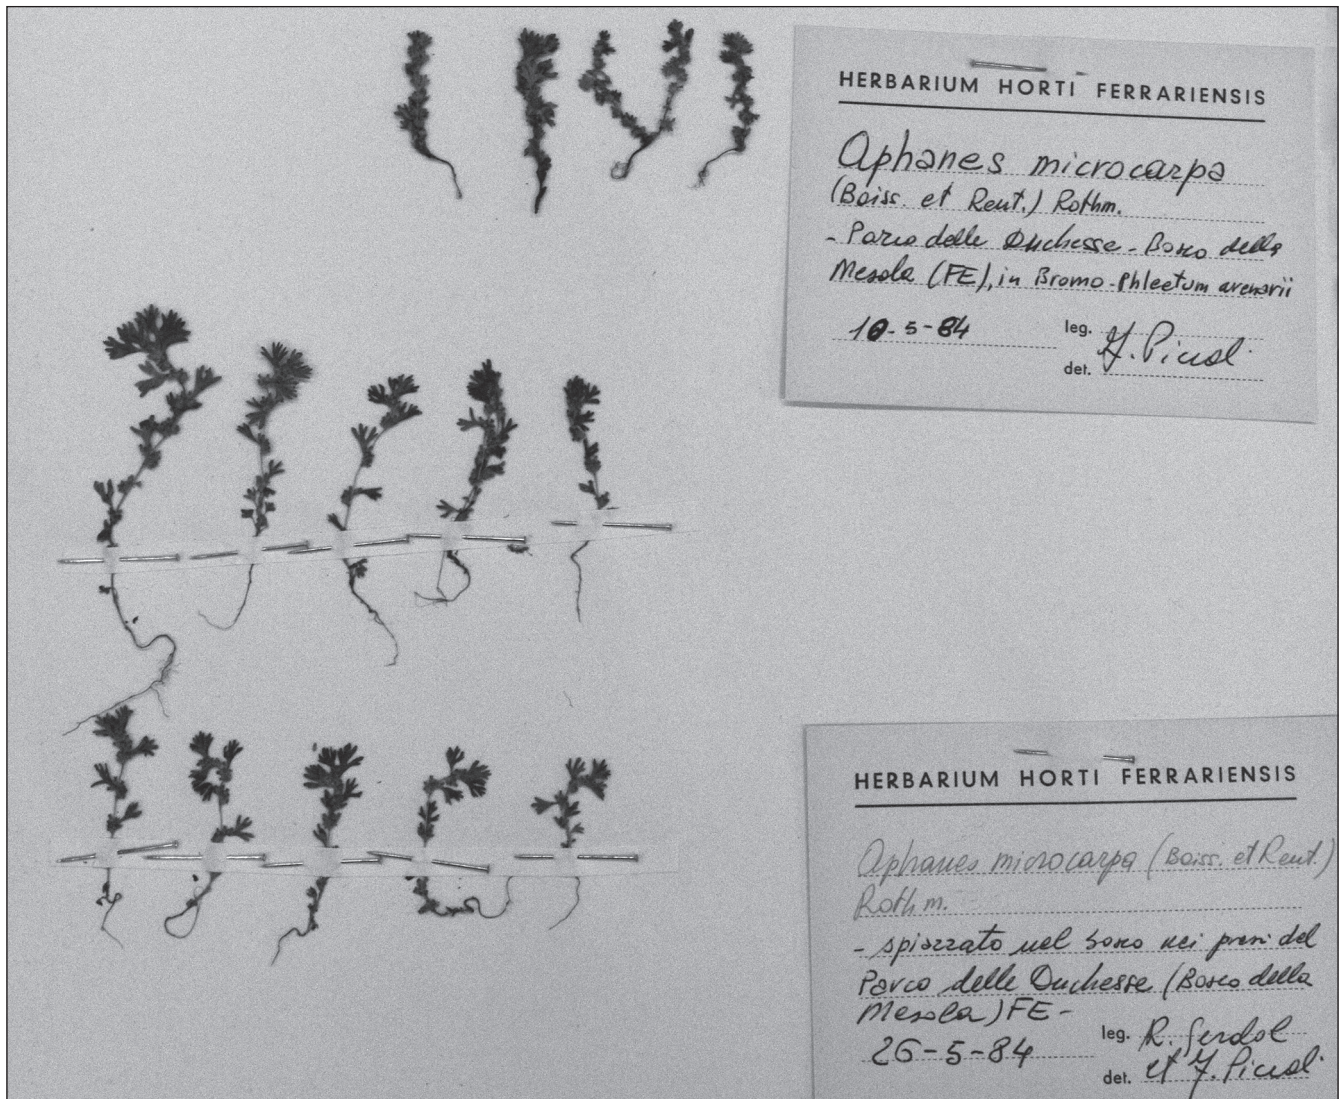 HERBARIUM HORTI FERRARIENSIS
Aphanes microcarpa
(Boiss. et Reut.) Rothm.
- Parco delle Duchesse - Bosco della
Mesola (FE), in Bromo-Phleetum arenarii
10-5-84
leg. F. Piccoli
det.
HERBARIUM HORTI FERRARIENSIS
Aphanes microcarpa (Boiss. et Reut.)
Rothm.
- spiazzato nel bosco nei pressi del
Parco delle Duchesse (Bosco della
Mesola) FE -
26-5-84
leg. R. Gerdol
det. et F. Piccoli